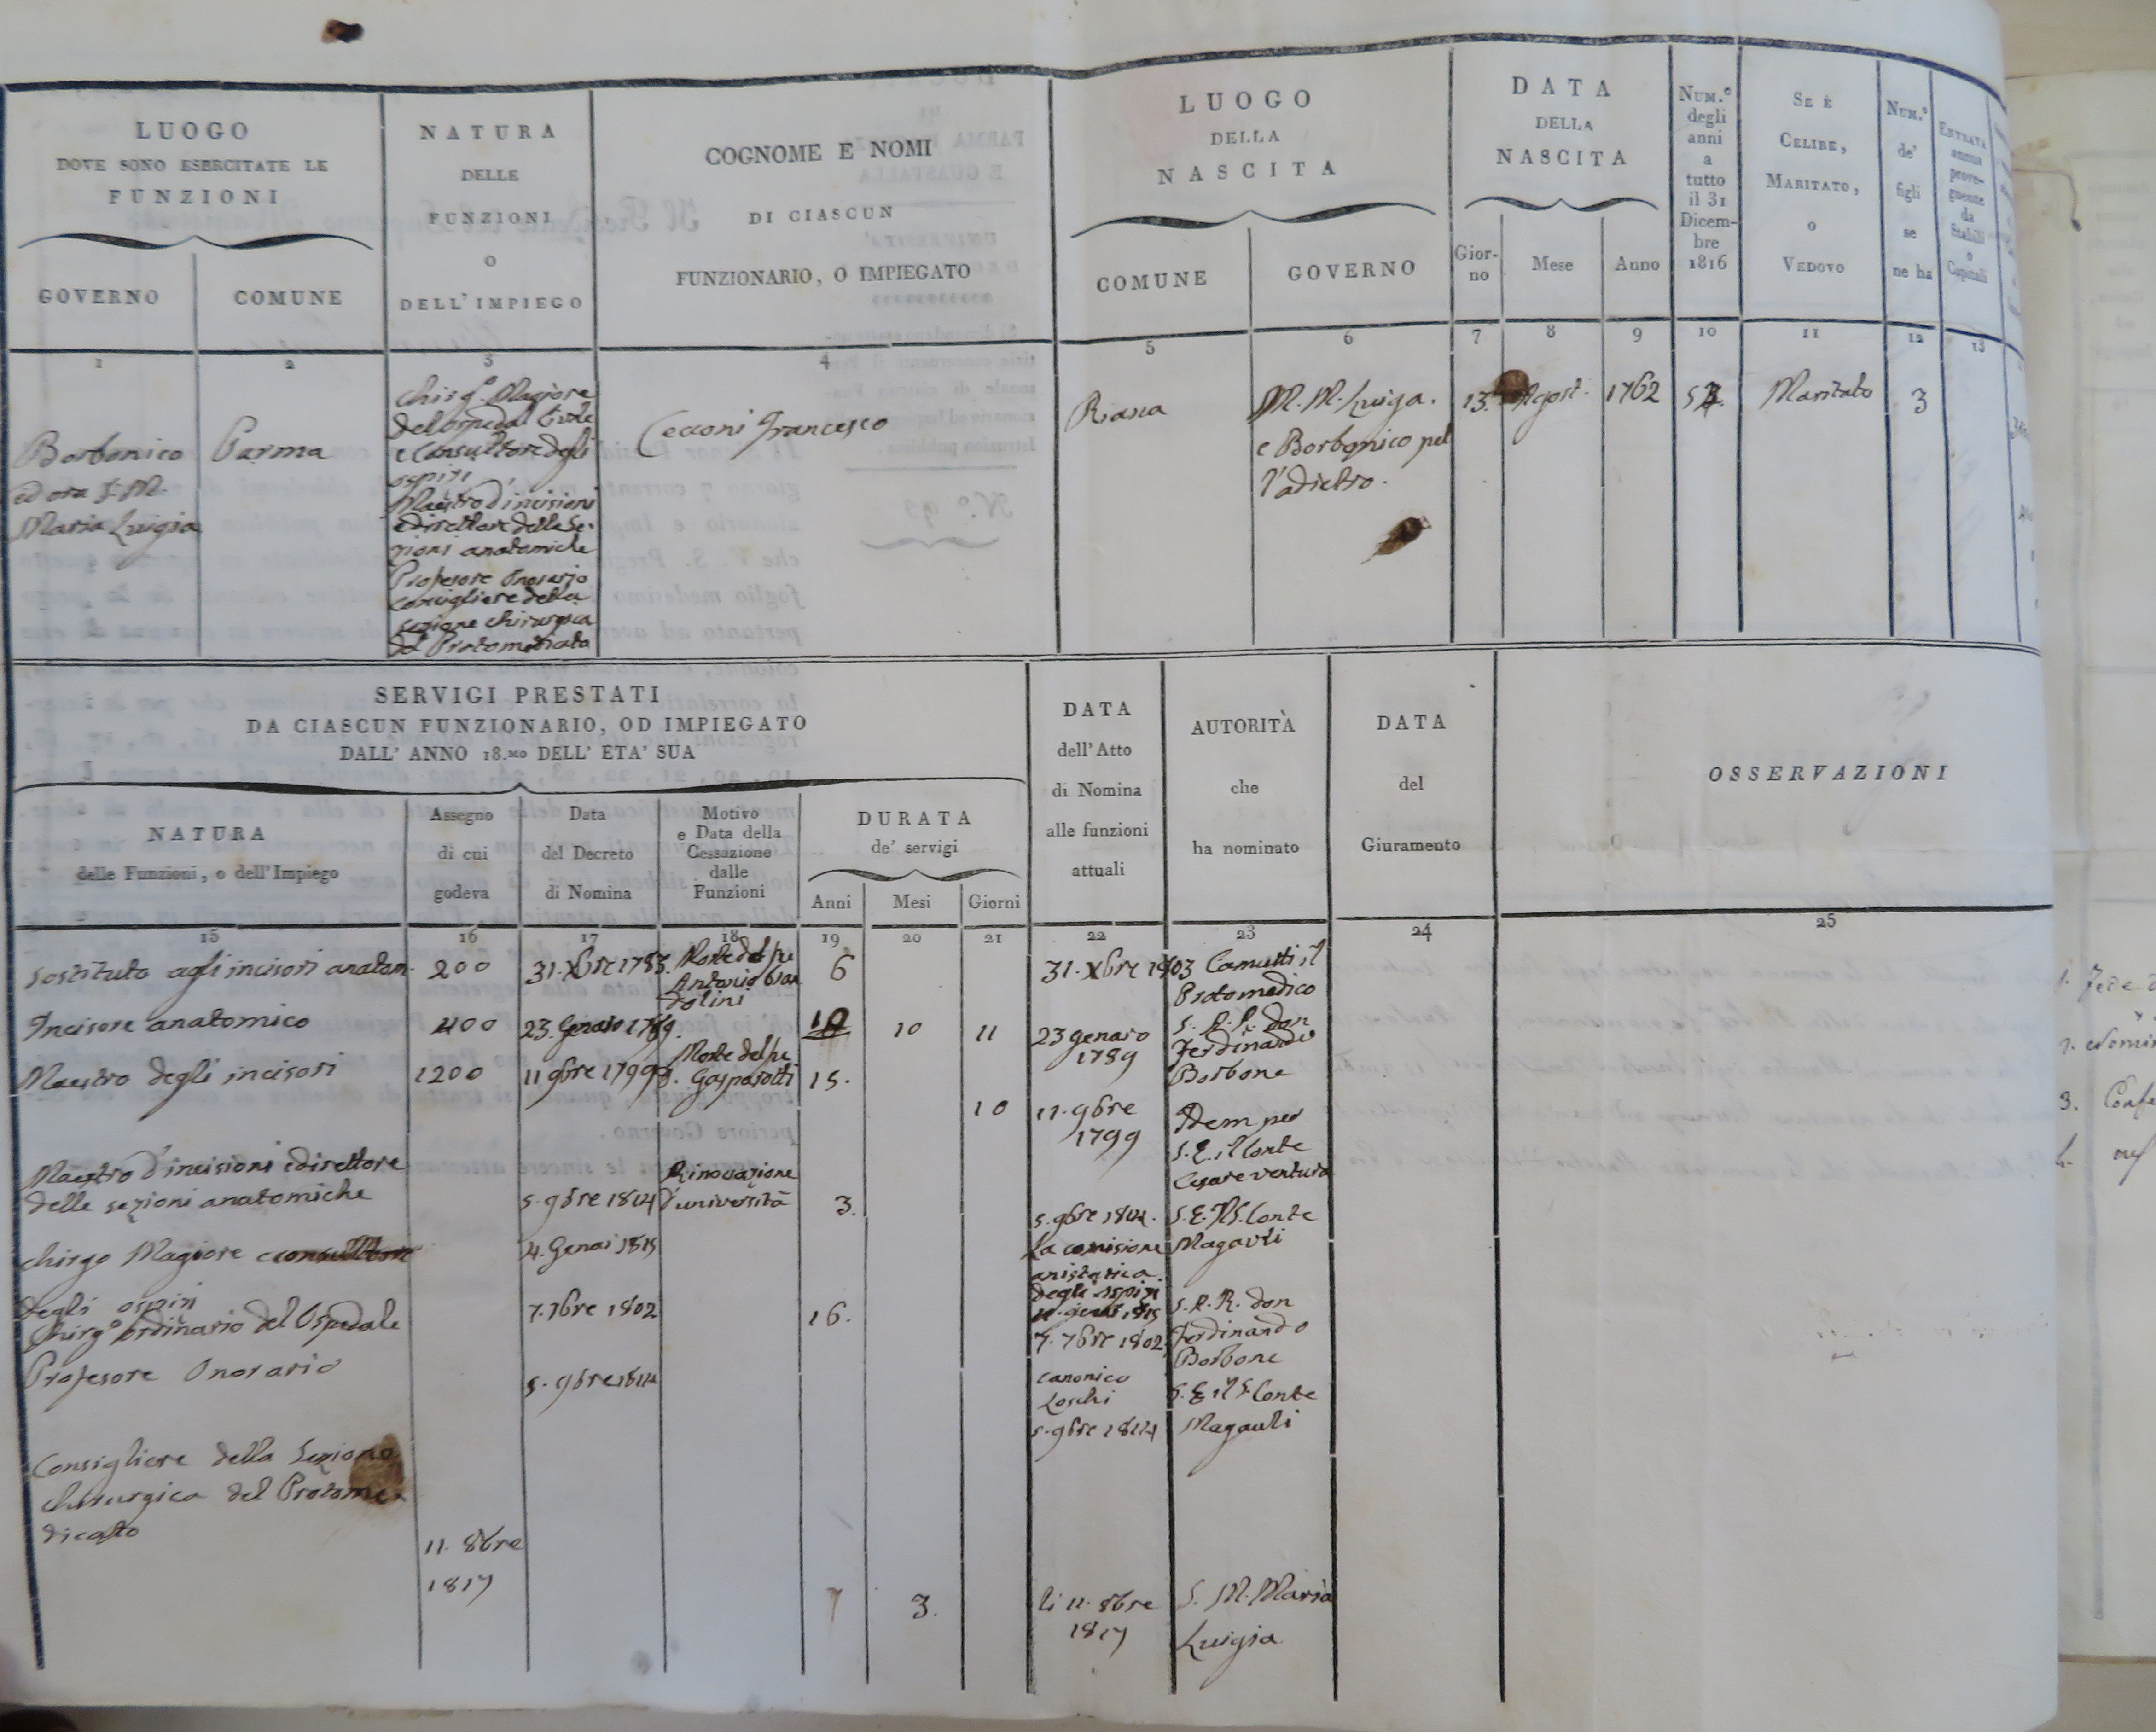 LUOGO
DOVE SONO ESERCITATE LE
FUNZIONI
GOVERNO
COMUNE
NATURA
DELLE
FUNZIONI
O
DELL'IMPIEGO
COGNOME E NOMI
DI CIASCUN
FUNZIONARIO, O IMPIEGATO
LUOGO
DELLA
NASCITA
COMUNE
GOVERNO
DATA
DELLA
NASCITA
Gior-
no
Mese
Anno
NUM.º
degli
anni
a
tutto
il 31
Dicem-
bre
1816
SE È
CELIBE,
MARITATO,
O
VEDOVO
NUM.º
de'
figli
se
ne ha
ENTRATA
annua
prove-
gnente
da
Stabili
o
Capitali
1
2
3
4
5
6
7
8
9
10
11
12
13
Borbonico
ed ora S. M.
Maria Luigia
Parma
Chirg.º Magiore
del ospedal Civile
e Consultore degli
ospizi
Maestro d'incisioni
e direttore delle Se-
zioni anatomiche
Profesore Onorario
Consigliere della
sezione chirurgica
del Protomedicato
Cecconi Francesco
M. M. Luiga.
e Borbonico pel
l'adietro.
13.
Agost.
1762
Maritato
3
SERVIGI PRESTATI
DA CIASCUN FUNZIONARIO, OD IMPIEGATO
DALL' ANNO 18.MO DELL' ETA' SUA
NATURA
delle Funzioni, o dell'Impiego
Assegno
di cui
godeva
Data
del Decreto
di Nomina
Motivo
e Data della
Cessazione
dalle
Funzioni
DURATA
de' servigi
Anni
Mesi
Giorni
DATA
dell'Atto
di Nomina
alle funzioni
attuali
AUTORITÀ
che
ha nominato
DATA
del
Giuramento
OSSERVAZIONI
15
16
17
18
19
20
21
22
23
24
25
Sostituto agli incisori anatom.
200
31. Xbre 1783.
Morte del fu
Antonio
6
31. Xbre 1803
Camutti il
Protomedico
Incisore anatomico
400
23. Genaio 1789.
10
10
11
23 genaro
1789
S. A. R. don
Ferdinando
Borbone
Maestro degli incisori
1200
11 9bre 1799
Morte del fu
Gasparotti
15.
10
11. 9bre
1799
Idem per
S. E. il Conte
Cesare ventura
Maestro d'incisioni e direttore
delle sezioni anatomiche
5. 9bre 1814
Rinovazione
d'università
3.
5. 9bre 1814.
S. E. il S. Conte
Magauli
Chirgo Magiore e consultore
degli ospizi
4. Genai 1815
La comisione
degli ospizi
Chirg.º ordinario del Ospedale
7. 7bre 1802
16.
7. 7bre 1802.
S. A. R. don
Ferdinando
Borbone
Profesore Onorario
5. 9bre 1814
canonico
Loschi
5. 9bre 1814
S. E. il S. Conte
Magauli
Consigliere della Sezione
chirurgica del Protome-
dicato
11. 8bre
1817
7
3.
li 11. 8bre
1817
S. M. Maria
Luigia
1. Fede
2.
3.